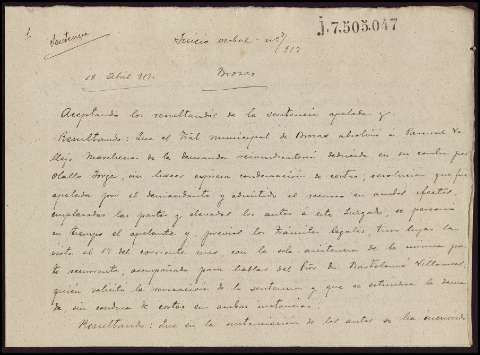 J.7.505.047
1.
Sentencia
Juicio verbal - nº 7/
917
18 Abril 917.
Brozas
Aceptando los resultandos de la sentencia apelada y
Resultando: Que el Tribl municipal de Brozas absolvió a
de la demanda reconvencional deducida en su contra por
Olallo Jorge, sin hacer expresa condenación de costas, resolución que fué
apelada por el demandante y admitido el recurso en ambos efectos,
emplazadas las partes y elevados los autos a este Juzgado, se personó
en tiempo el apelante y previos los trámites legales, tuvo lugar la
vista el 17 del corriente mes con la sola asistencia de la misma par-
te recurrente, acompañada para hablar del Pror Dn Bartolomé Villarroel,
quién solicitó la revocación de la sentencia y que se estimara la deman-
da sin condena de costas en ambas instancias.
Resultando: Que en la sustanciación de los autos se ha